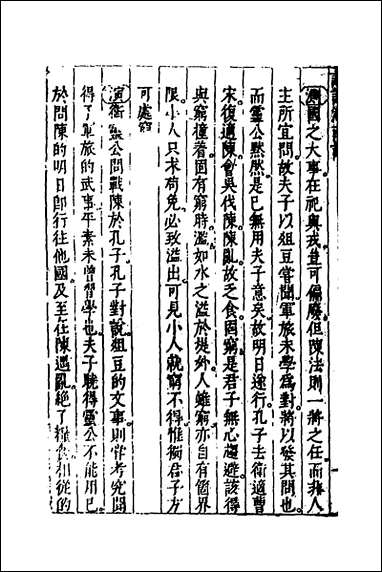 測國之大事在祀與戎豈可偏廢但陳法則一將之任而非人
主所宜問故夫子以俎豆嘗聞軍旅未學為對將以發其問也
而靈公黙然是已無用夫子意矣故明日遂行孔子去衛適曹
宋復適陳會吳伐陳陳亂故乏食固窮是君子無心趨避該得
與窮撞着固有窮時濫如水之溢於堤外人雖窮亦自有箇界
限小人只求苟免必致溢出可見小人就窮不得惟獨君子方
可處窮
演衞靈公問戰陳於孔子孔子對說俎豆的文事則嘗考究聞
得了軍旅的武事平素未曾習學也夫子曉得靈公不能用己
於問陳的明日卽行往他國及至在陳遇亂絶了糧食相從的